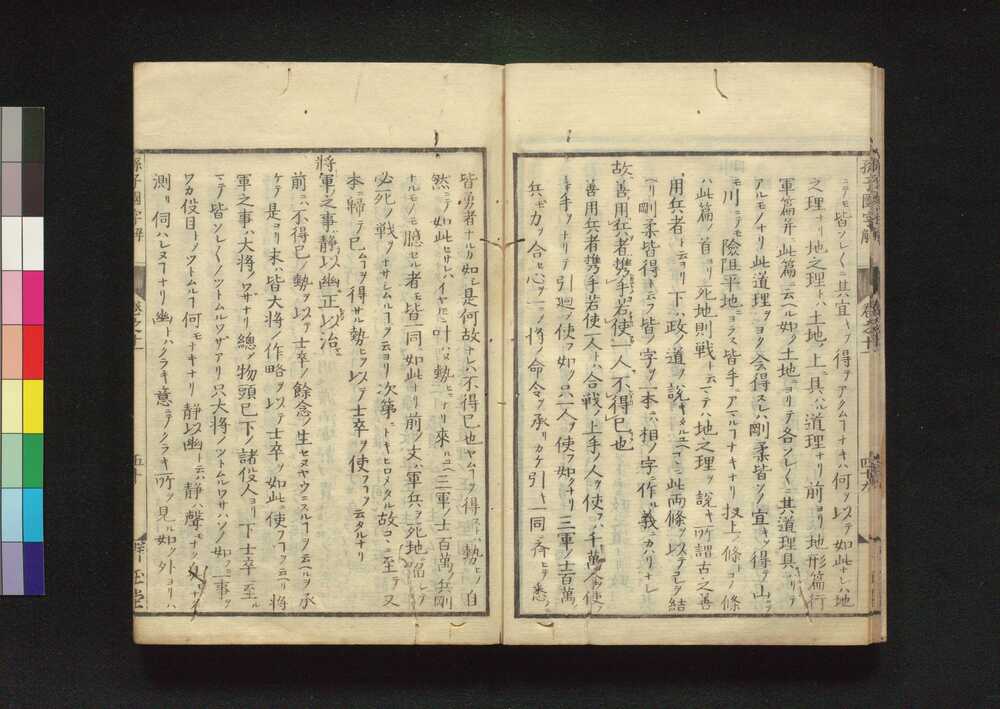 孫子國字解 卷之十一 四十九
ニテモ皆ソレ〱ニ其宜キヲ得ヲアクムヿナキハ何ヲ以テ如此ナレハ地
之理ナリ地之理トハ土地ノ上ニ具ハル道理ナリ前ヨリ地形篇行
軍篇幷此篇ニ云ヘル如ク土地ニヨリテ各ソレ〱ニ其道理具ハリテ
アルモノナリ此道理ヲヨク会得スレハ剛柔皆ソノ宜キヲ得テ山ニ
モ川ニテモ險阻平地ニヨラス皆手ニアマルヿナキナリ扨上ノ條ヨリ條
ハ此篇ノ首ヨリ死地則戦ト云マテハ地之理ヲ說キ所謂古之善
用兵者ト云ヨリ下ハ政ノ道ヲ說キタルユヘコヽニ此両條ヲ以テコレヲ結
ヘリ剛柔皆得ト云フ皆ノ字ヲ一本ニハ相ノ字ニ作ル義ニカハリナレ
故善用兵者攜手若使一人不得已也
善用兵者攜手若使一人トハ合戦ノ上手ノ人ヲ使フハ千萬人ヲ使ノ
手ヲナリテ引廻シ使フ如ク只一人ヲ使フ如クナリ三軍ノ士百萬ノ
兵モ力ヲ合セ心ヲ一ツニ將ノ命令ヲ承リカケ引キ一同ニ齊ヒテ悉ク
皆勇者ナルカ如シ是何故ナレハ不得已也ヤムヿヲ得スト勢ヒノ自
然ニテ如此ヒサレハイヤトモニ叶ハヌ勢ヒナリ來ルユヘ三軍ノ士百萬ノ兵剛
ナルモノモ臆セル者モ皆一同ニ如此ナリ前ノ文ハ軍兵ヲ死地ニ陷レテ
必死ノ戦ヲナサレムルヿヲ云ヨリ次第ニトキヒロメタル故コヽニ至テ又
本ニ歸シテ已ムヿヲ得サル勢ヒヲ以テ士卒ヲ使フヿヲ云タルナリ
將軍之事靜以幽正以治
前ニハ不得已ノ勢ヲ以テ士卒ノ餘念ノ生セヌヤウニスルヿヲ云ヘルヲ承
ケテ是ヨリ末ハ皆大將ノ作略ヲ以テ士卒ヲ如此ニ使フヿヲ云ヘリ將
軍之事ハ大將ノワザナリ總ノ物頭已下ノ諸役人ヨリ下士卒ニ至ル
マテ皆ソレ〱ノツトムルワザアリ只大將ノツトムルワサハソノ如クニ一事ヲ
ワカ役目トノツトムルヿ何モナキナリ靜以幽ト云ハ靜ハ聲モナク
測リ伺ハレヌヿナリ幽トハクラキ意ニテクラキ所ヲ見ル如ク外ヨリハ
孫子國字解 卷之十一 五十 群玉堂